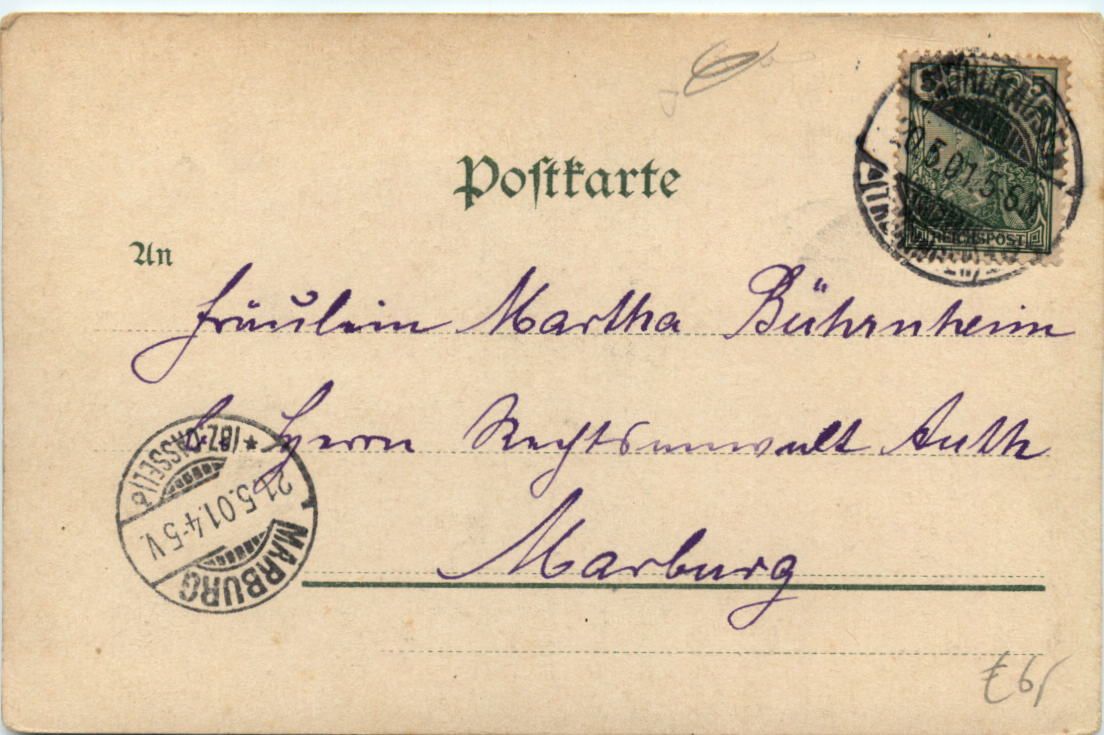 Postkarte
An
Fräulein Martha Bührnheim
b. Herrn Rechtsanwalt Auth
Marburg
5
REICHSPOST
20.5.01. 5-6 N.
MARBURG
21.5.01. 4-5 V.
* (BZ. CASSEL) a
£6/